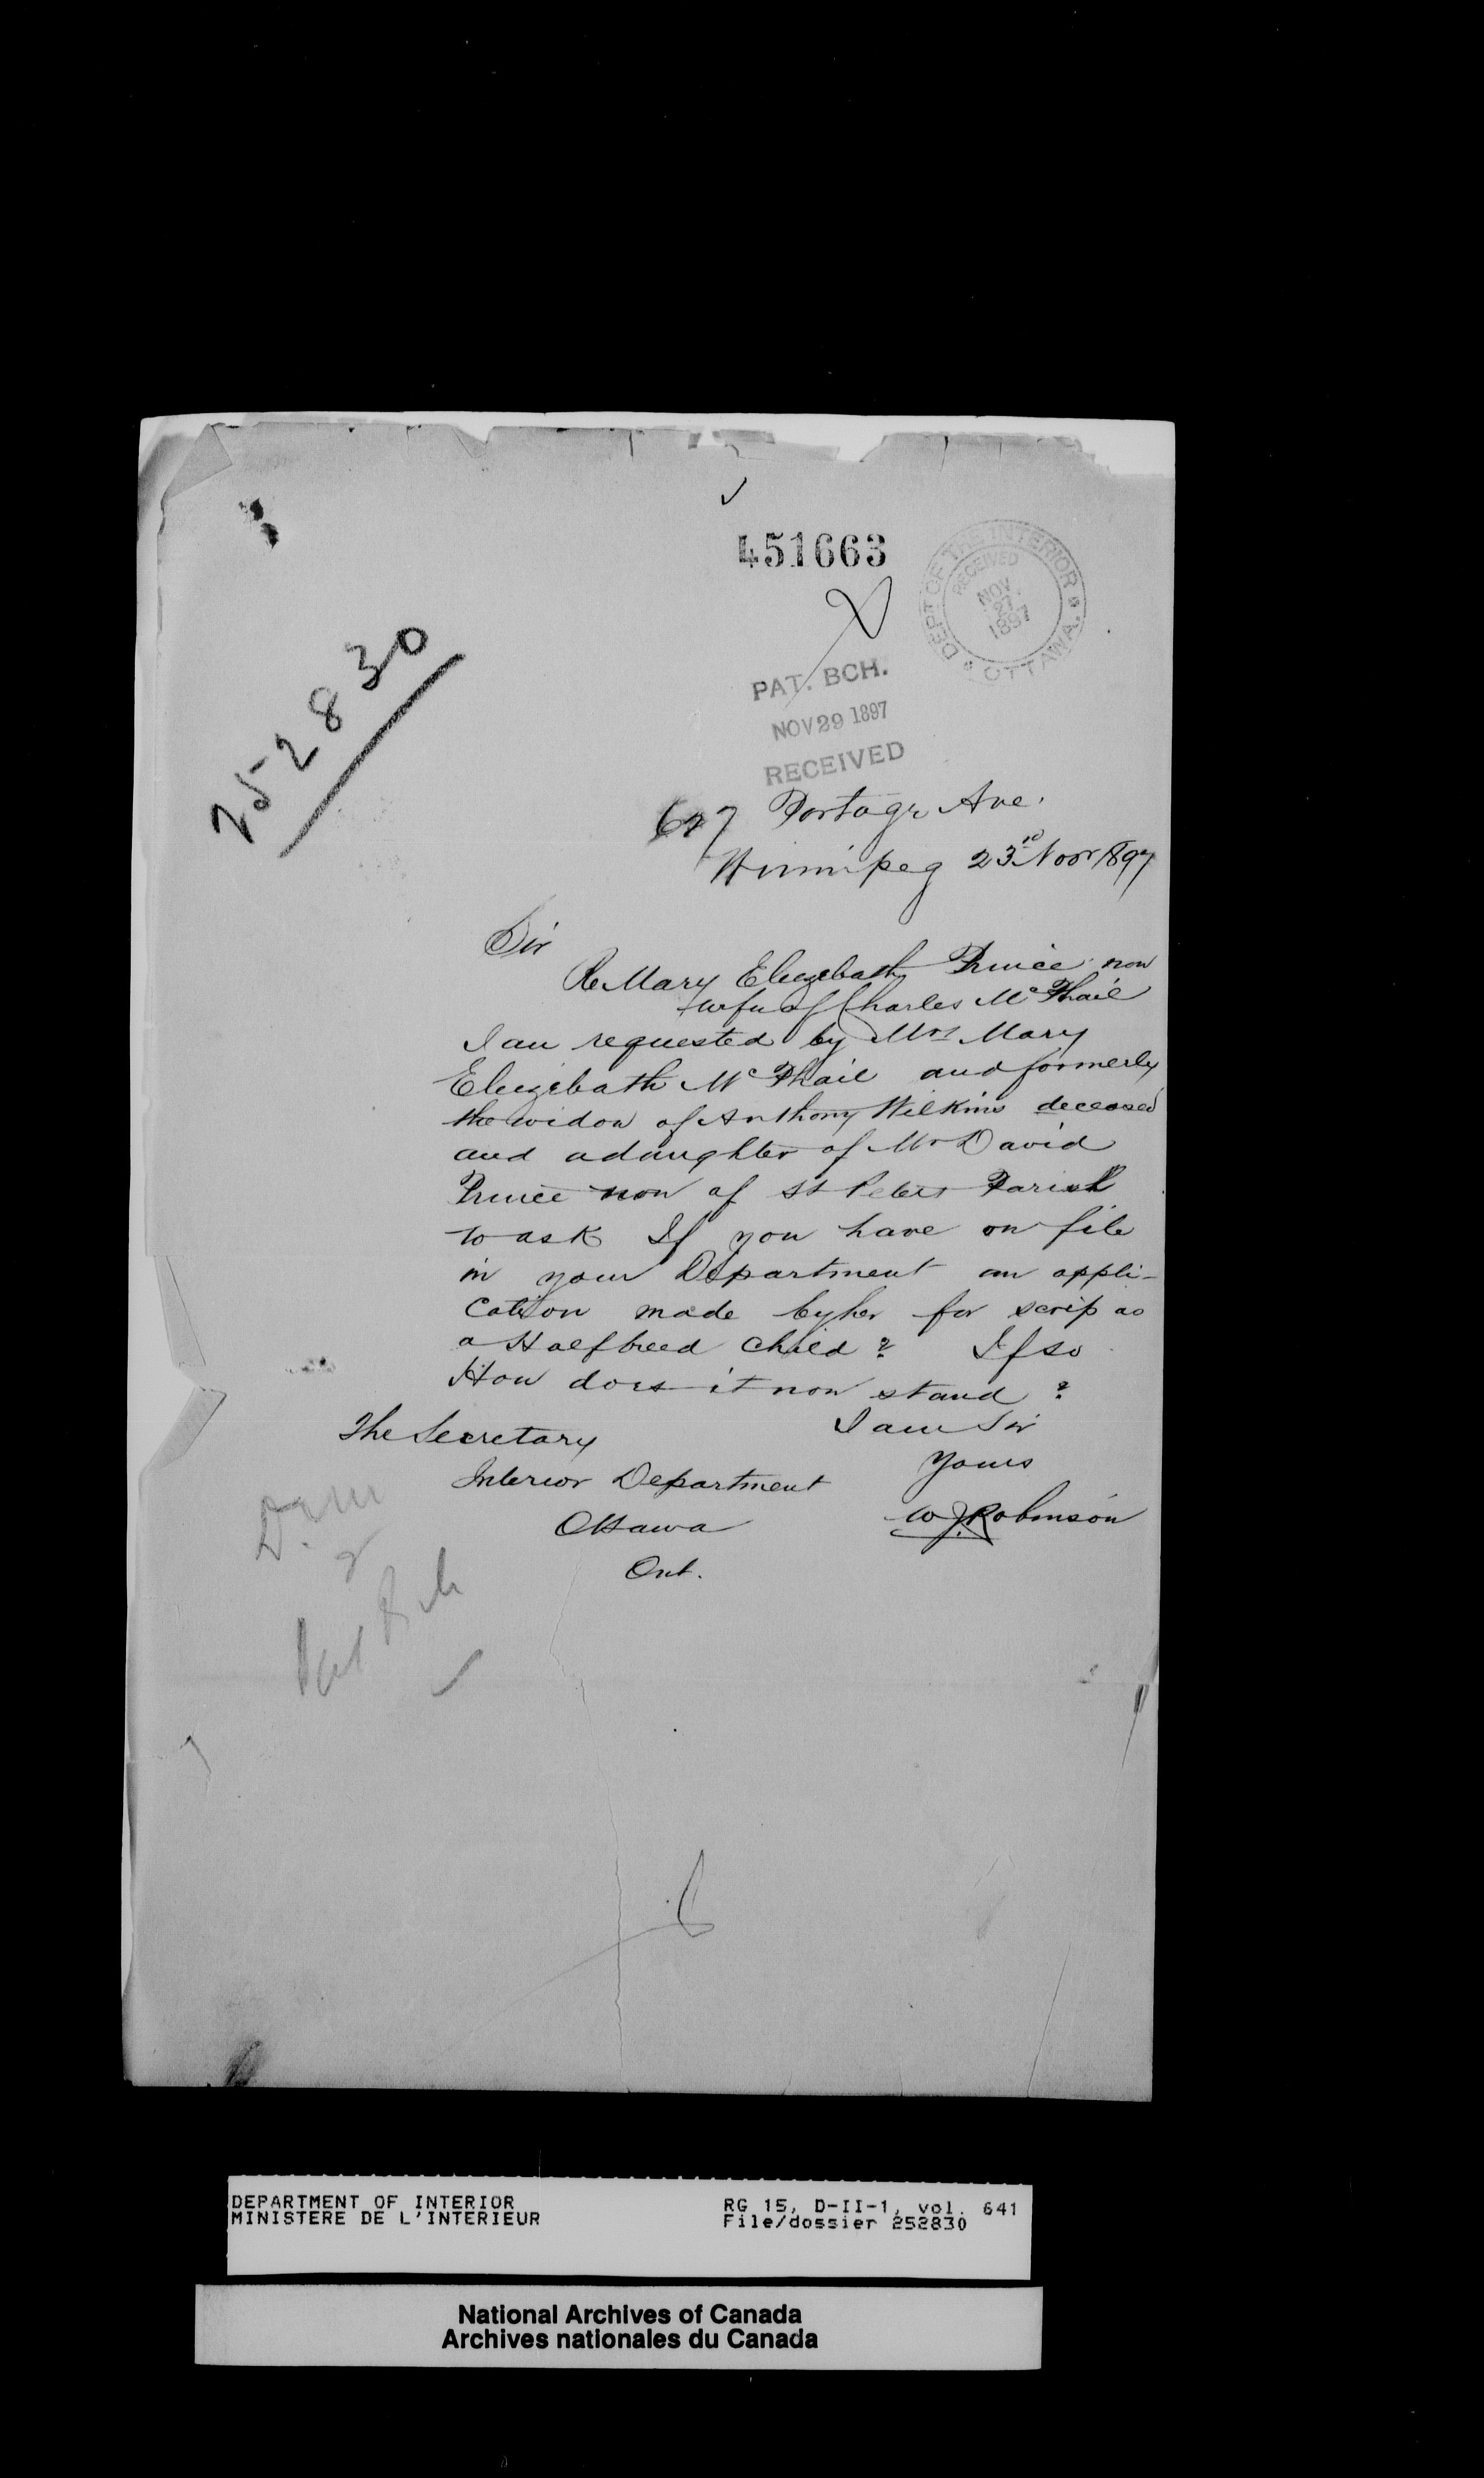 451663
DEPT OF THE INTERIOR
RECEIVED
NOV.
27
1897
OTTAWA.
252830
PAT. BCH.
NOV 29 1897
RECEIVED
Portage Ave.
Winnipeg 23rd Novr 1897
Sir
Re Mary Elizebath Prince now
wife of Charles McPhail
I am requested by Mrs Mary
Elizebath McPhail and formerly
the widow of Anthony Wilkins deceased
and a daughter of Mr David
Prince now of St Peters Parish
to ask If you have on file
in your Department an appli-
cation made by her for scrip as
a Halfbreed child? If so
How does it now stand?
I am Sir
Yours
W J Robinson
The Secretary
Interior Department
Ottawa
Ont.
DEPARTMENT OF INTERIOR
MINISTERE DE L'INTERIEUR
RG 15, D-II-1, vol. 641
File/dossier 252830
National Archives of Canada
Archives nationales du Canada